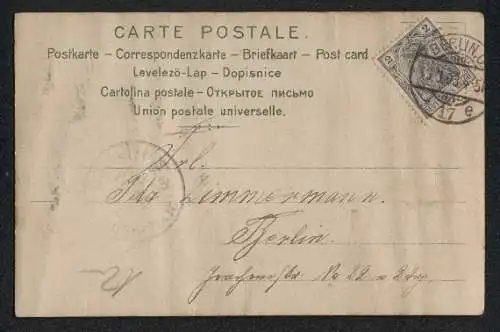 CARTE POSTALE.
Postkarte – Correspondenzkarte – Briefkaart – Post card
Levelező-Lap – Dopisnice
Cartolina postale – Открытое письмо
Union postale universelle.
2 2
BERLIN, C.
17 e
Frl.
Ida Zimmermann.
Berlin.
No 12
12